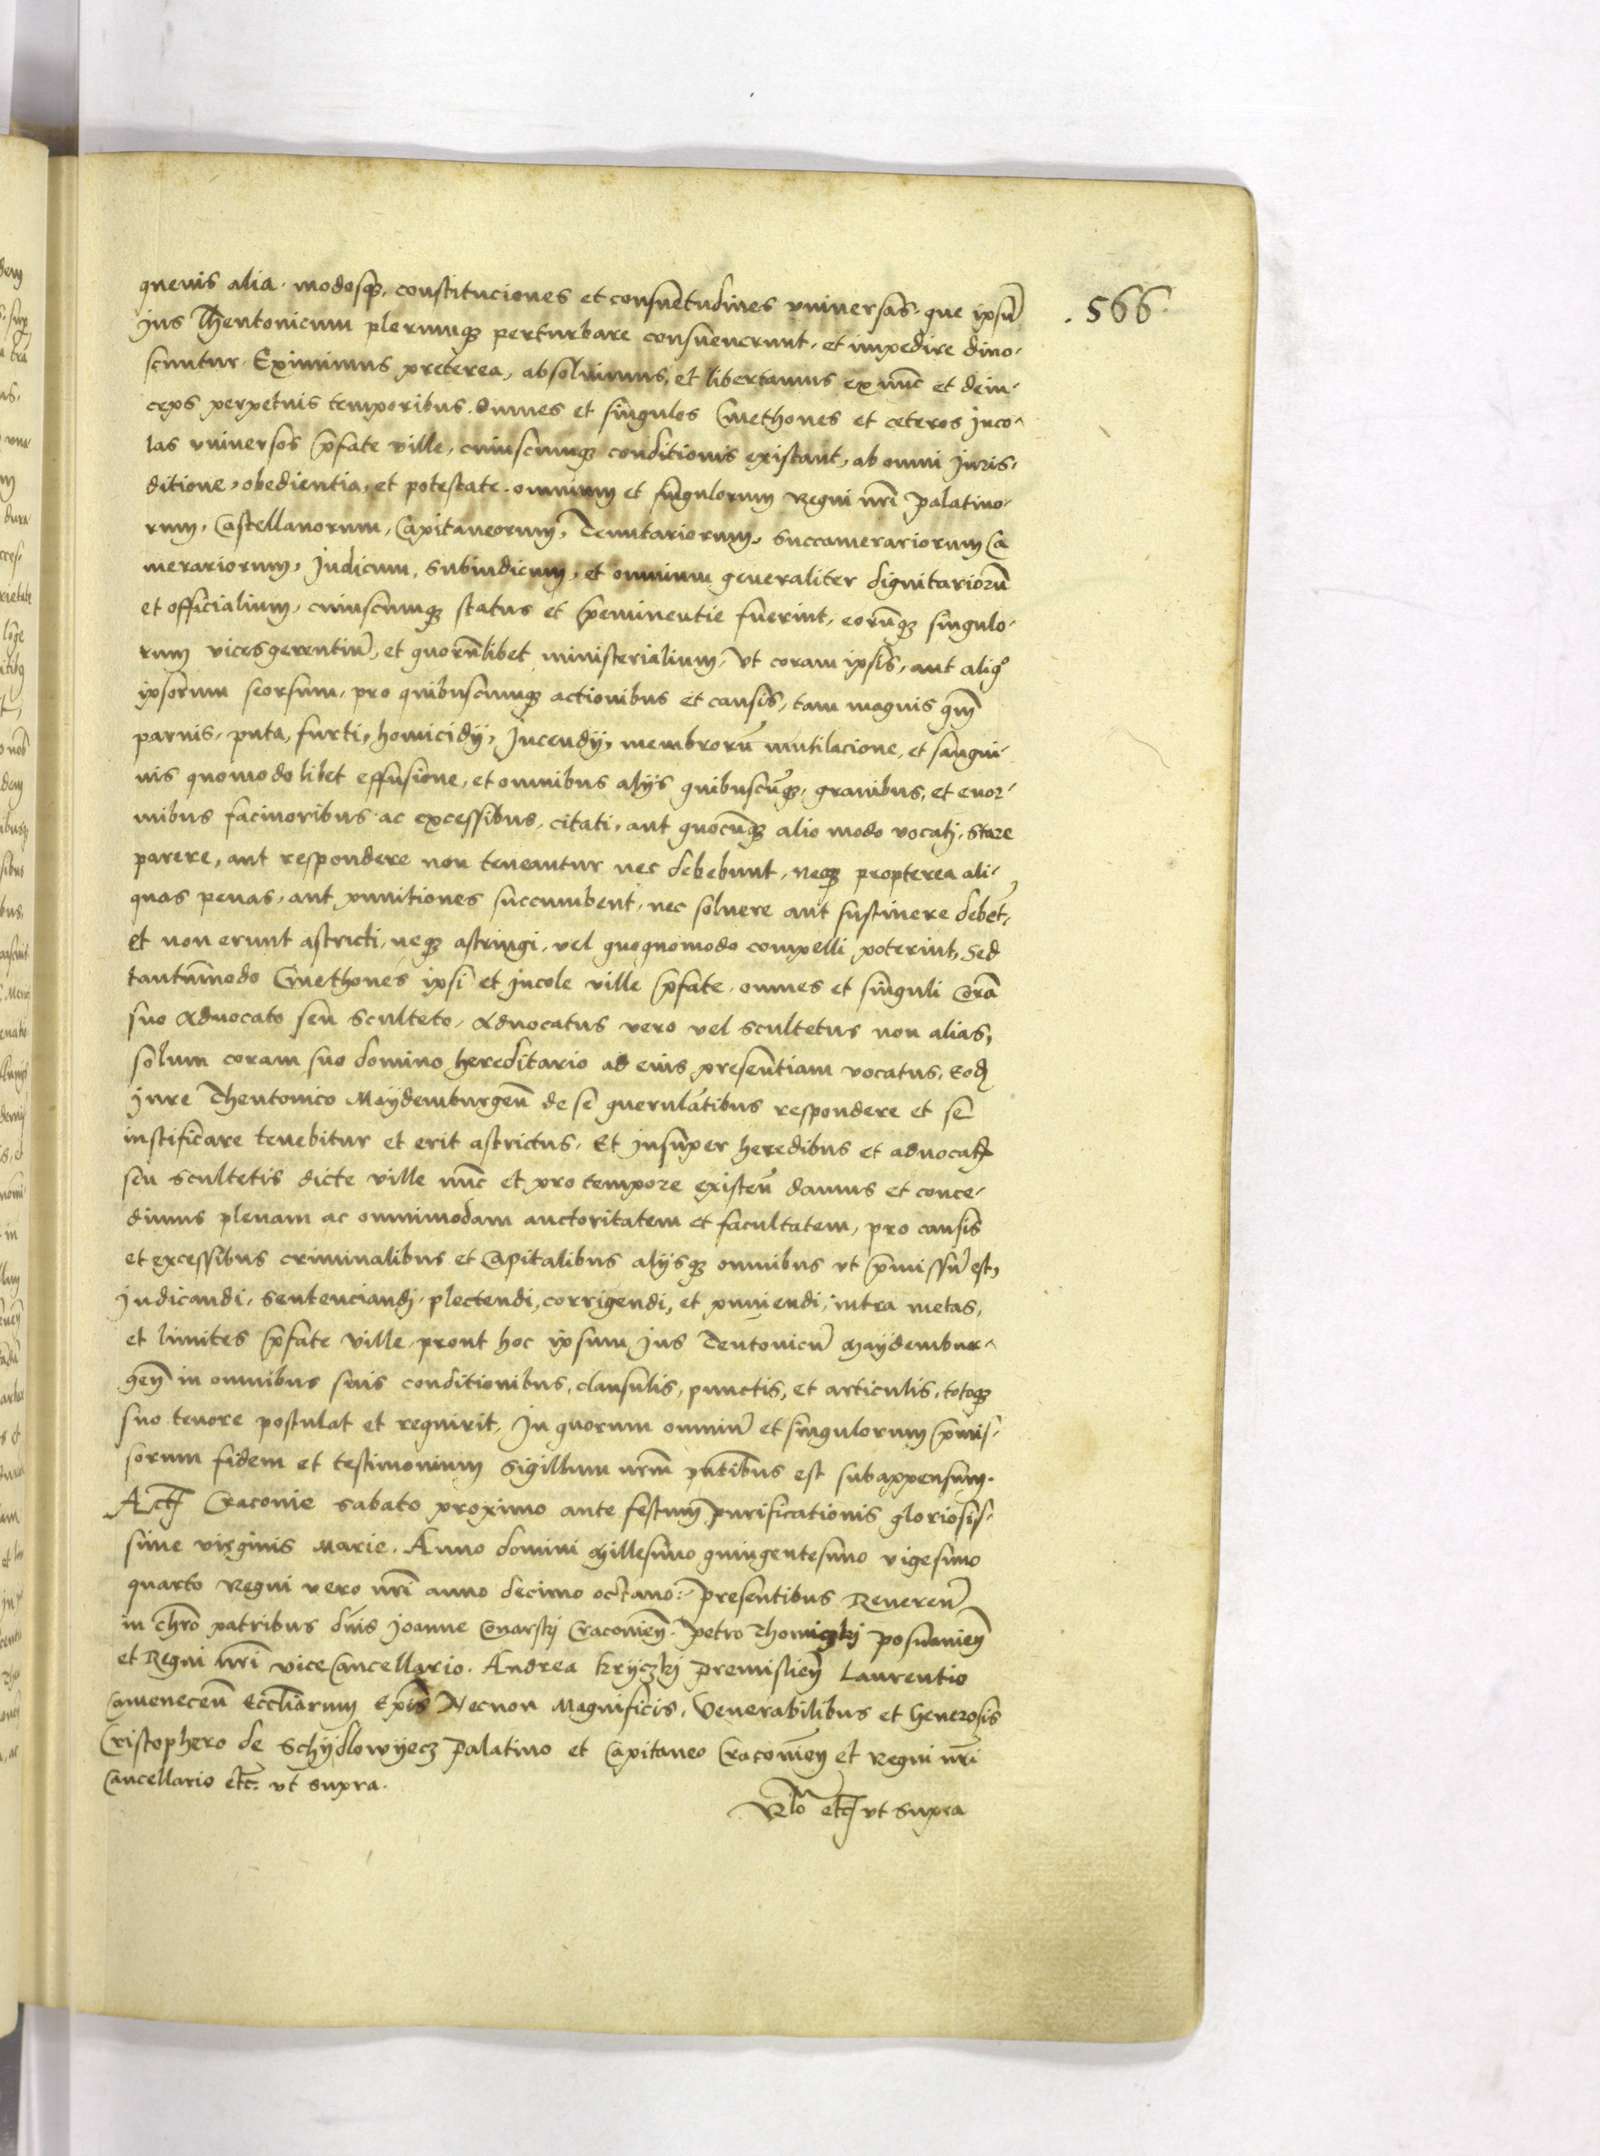 quevis alia modosq, constituciones et consuetudines universas que ipsū
. 566
ius Theutonicum plerumq perturbare consueuerunt, et impedire dino-
scuntur. Eximimus preterea, absoluimus, et libertamus ex nūc et dein-
ceps perpetuis temporibus. Omnes et singulos Cmethones et ceteros inco-
las vniversos p̄fate ville, cuiuscumq conditionis existant, ab omni iuris-
ditione, obedientia, et potestate omnium et singulorum Regni nr̄i palatino-
rum, Castellanorum, Capitaneorum, Tenutariorum, Succamerariorum Ca
merariorum, Judicum, Subiudicum, et omnium generaliter dignitariorū
et officialium, cuiuscumq status et p̄eminentie fuerint, eorūq singulo-
rum vicesgerentiū, et quorūlibet ministerialium, Vt coram ipsis, aut aliqo
ipsorum seorsum, pro quibuscumq actionibus et causis, tam magnis qm̄
paruis, puta, furti, homicidij, Incendij, membrorū mutilacione, et sangui-
nis quomodolibet effusione, et omnibus alijs quibuscūq, grauibus, et enor-
mibus facinoribus ac excessibus, citati, aut quocūq alio modo vocati, Stare
parere, aut respondere non teneantur nec debebunt, neq propterea ali-
quas penas, aut punitiones succumbent, nec soluere aut sustinere debēt,
et non erunt astricti, neq astringi, vel quoquomodo compelli poterint, Sed
tantūmodo Cmethones ipsi et incole ville p̄fate, omnes et singuli Corā
suo Aduocato seu Sculteto, Aduocatus vero vel scultetus non alias,
solum coram suo domino hereditario ad eius presentiam vocatus, Eodē
iure Theutonico Maydemburgeñ de se querulātibus respondere et se
iustificare tenebitur et erit astrictus. Et insuper heredibus et aduocatis
seu scultetis dicte ville nūc et pro tempore existeñ damus et conce-
dimus plenam ac omnimodam auctoritatem et facultatem, pro causis
et excessibus criminalibus et Capitalibus alijsq omnibus vt p̄missū est,
Judicandi, Sentenciandi, plectendi, corrigendi, et puniendi, intra metas,
et limites p̄fate ville, prout hoc ipsum ius Teutonicū Maydembur-
geñ in omnibus suis conditionibus, clausulis, punctis, et articulis, totoq
suo tenore postulat et requirit. In quorum omniū et singulorum p̄mis-
sorum fidem et testimonium Sigillum nr̄m pn̄tibus est subappensum.
Act Cracouie Sabato proximo ante festum purificationis gloriosis-
sime virginis Marie. Anno domini Millesimo quingentesimo vigesimo
quarto Regni vero nr̄i anno decimo octauo: presentibus Reuereñ
in chro patribus dn̄is Joanne Conarskj Cracovieñ. Petro Thomiczkj posnanieñ
et Regni nr̄i viceCancellario. Andrea Kryczkj premislieñ Laurentio
Camenecen̄ Eccl̄iarum Ep̄is Necnon Magnificis, Venerabilibus et Generosis
Cristophero de Schydlowyecz palatino et Capitaneo Cracovieñ et Regni nr̄i
Cancellario etc̄. vt supra.
Rlō etc vt supra